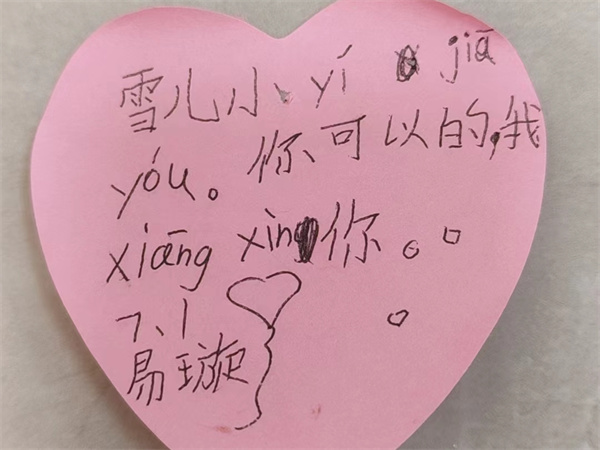 雪儿小yí jiā
yóu。你可以的,我
xiāng xìn你。
7、1
易璇